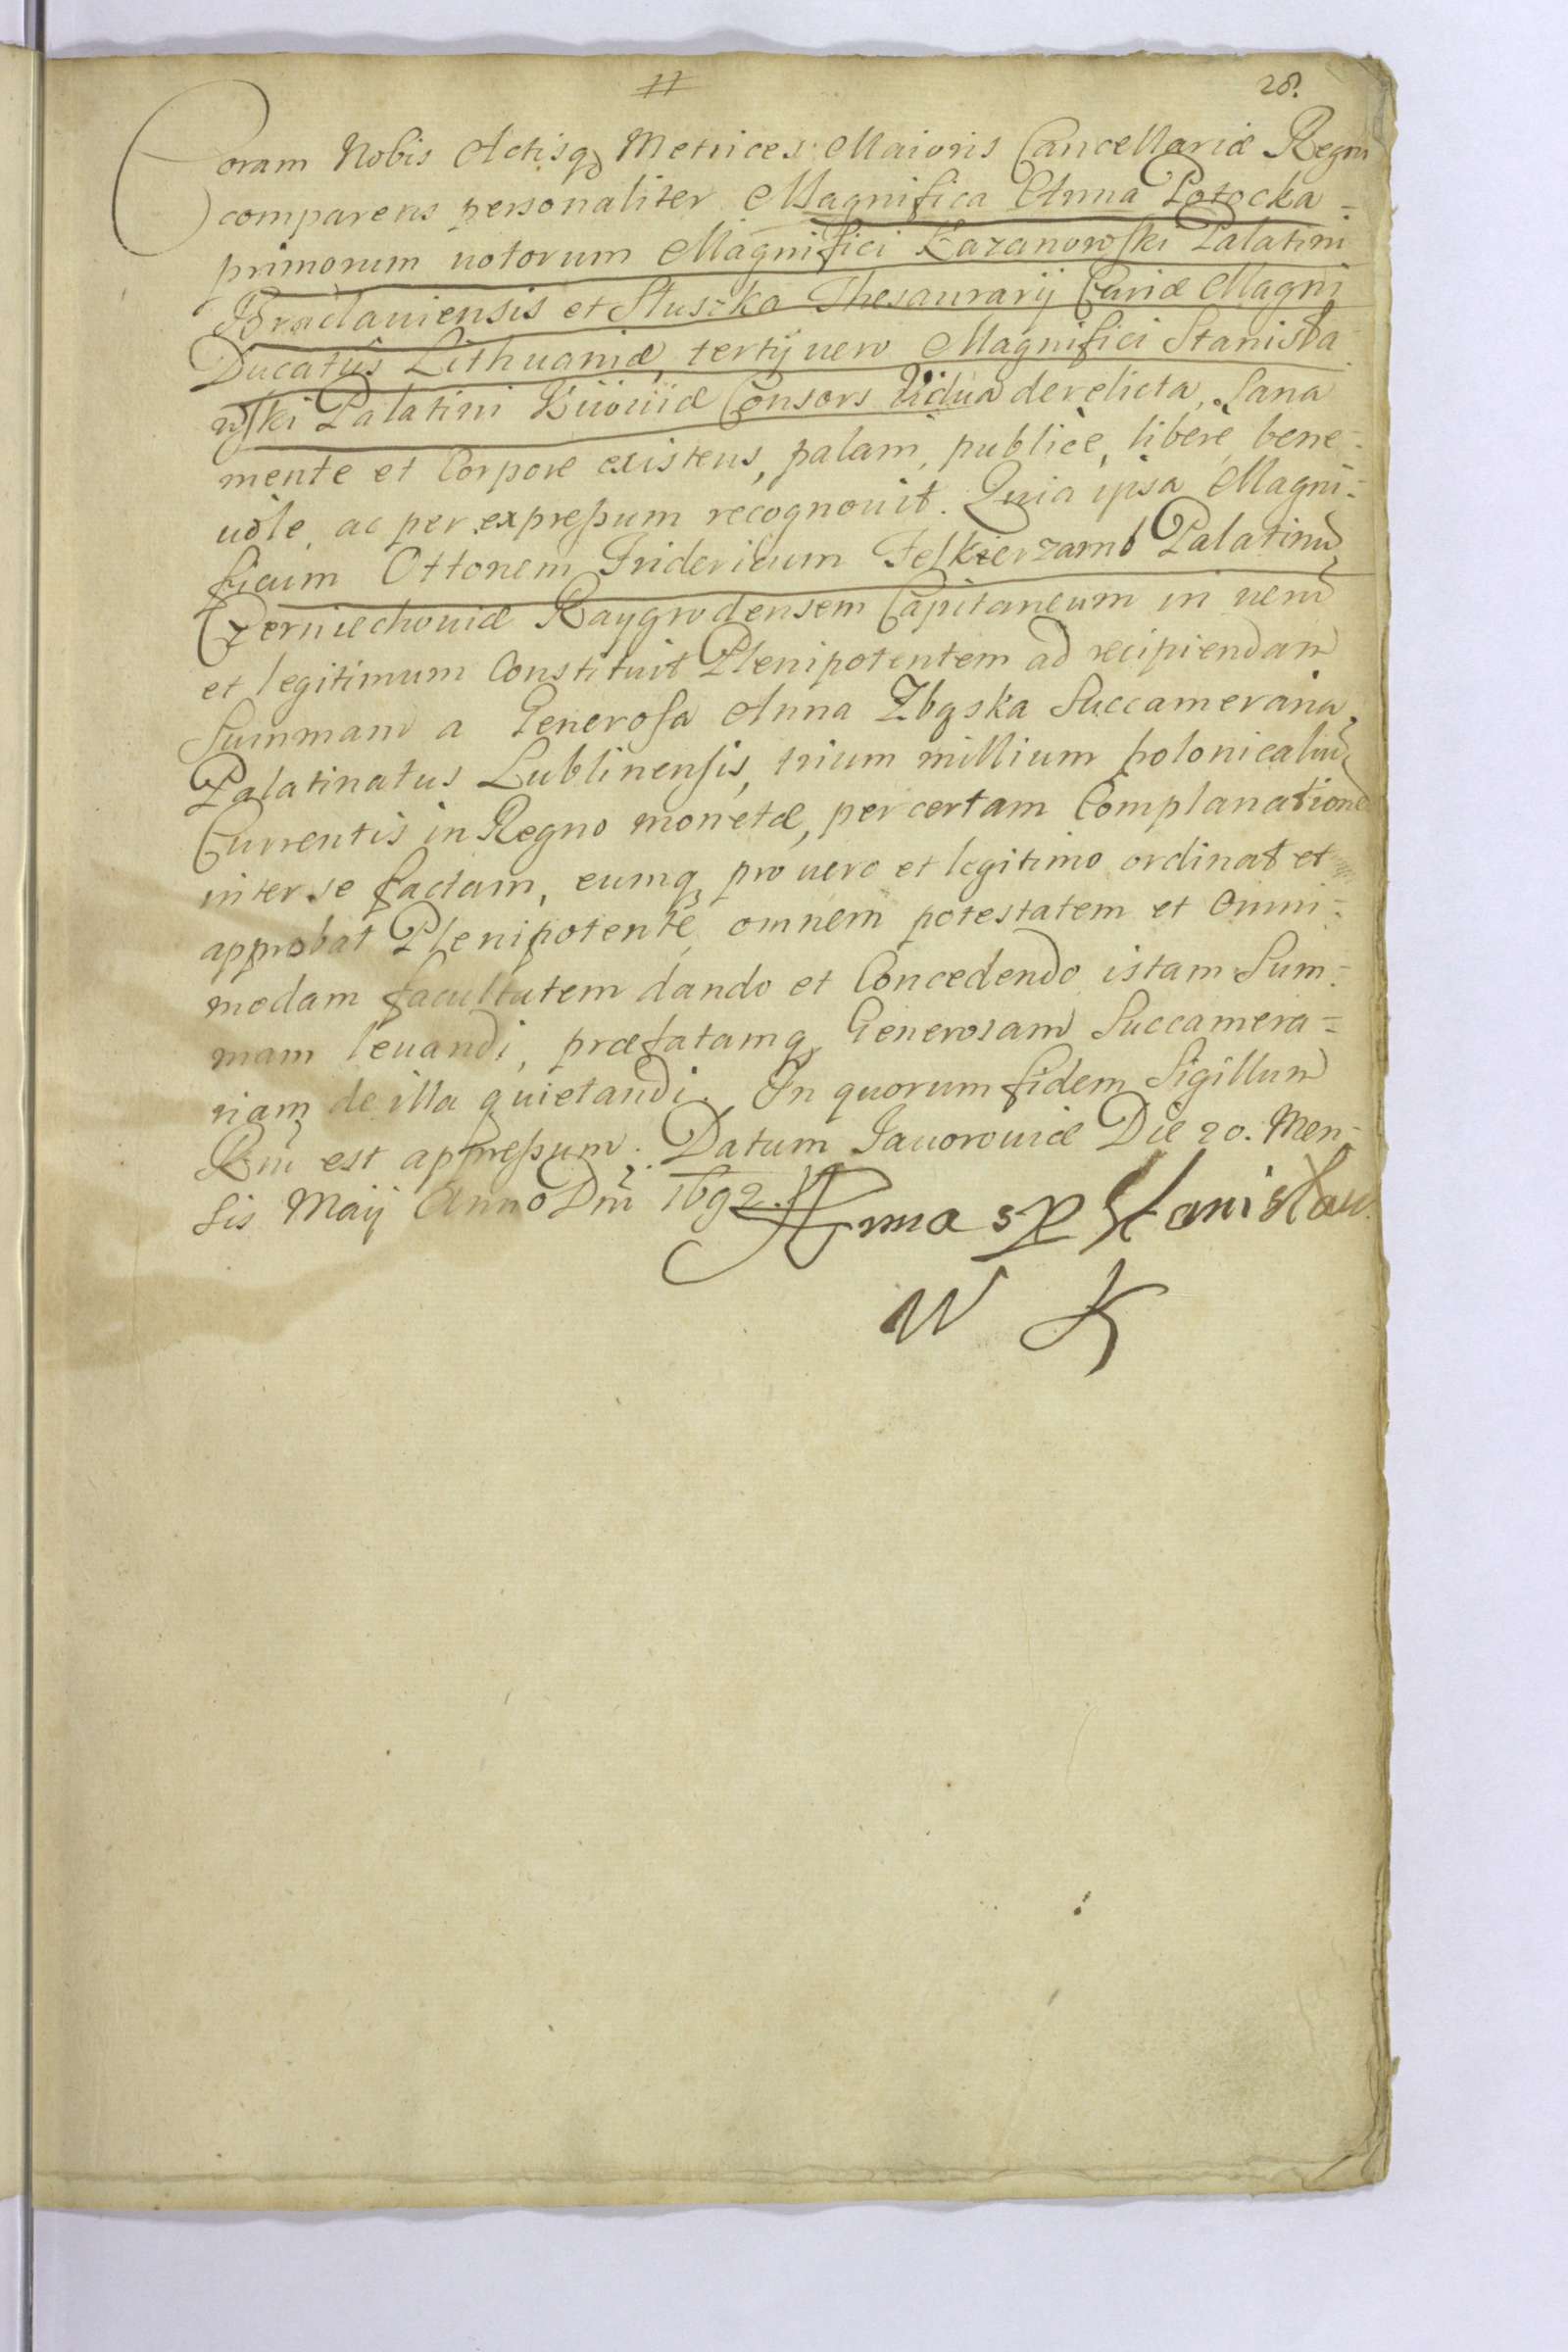 28.
Coram Nobis Actisq Metrices Maioris Cancellariæ Regni
comparens personaliter Magnifica Anna Potocka =
primorum uotorum Magnifici Kazanowski Palatini
Braclauiensis et Słuszka Thesaurarij Curiæ Magni
Ducatus Lithuaniæ, tertij uero Magnifici Stanisła=
wski Palatini Kiiouiæ Consors Uidua derelicta, Sana
mente et Corpore existens, palam, publicè, liberè, bene=
uole, ac per expreßum recognouit. Quia ipsa Magni=
ficum Ottonem Fridericum Felkierzamb Palatinū
Czerniechouiæ Raygrodensem Capitaneum in uerū
et legitimum Constituit Plenipotentem ad recipiendam
Summam a Generosa Anna Zbąska Succameraria
Palatinatus Lublinensis, trium millium polonicaliū
Currentis in Regno monetæ, per certam Complanationē
inter se factam, eumq pro uero et legitimo ordinat et
approbat Plenipotentē, omnem potestatem et Omni=
modam facultatem dando et Concedendo istam Sum=
mam leuandi, præfatamq Generosam Succamera=
riam de illa quietandi. In quorum fidem Sigillum
Rni est appreßum. Datum Jauorouiæ Die 20. Men=
sis Maij Anno Dni 1692.
Anna z P Stanisław
W K